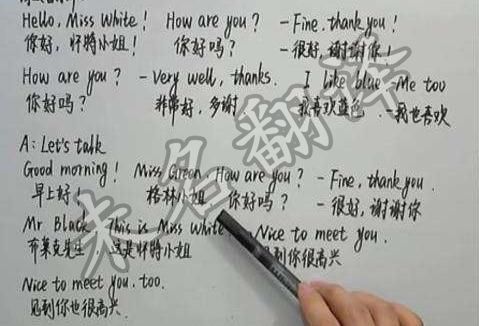 Hello, Miss White! How are you? - Fine, thank you!
你好,怀特小姐! 你好吗? - 很好,谢谢你!
How are you? - Very well, thanks. I like blue - Me too
你好吗? 非常好,多谢. 我喜欢蓝色 - 我也喜欢
A: Let's talk
Good morning! Miss Green, How are you? - Fine, thank you.
早上好! 格林小姐 你好吗? - 很好,谢谢你
Mr Black, This is Miss White Nice to meet you.
布莱克先生, 这是怀特小姐 见到你很高兴
Nice to meet you, too.
见到你也很高兴.
未名翻译